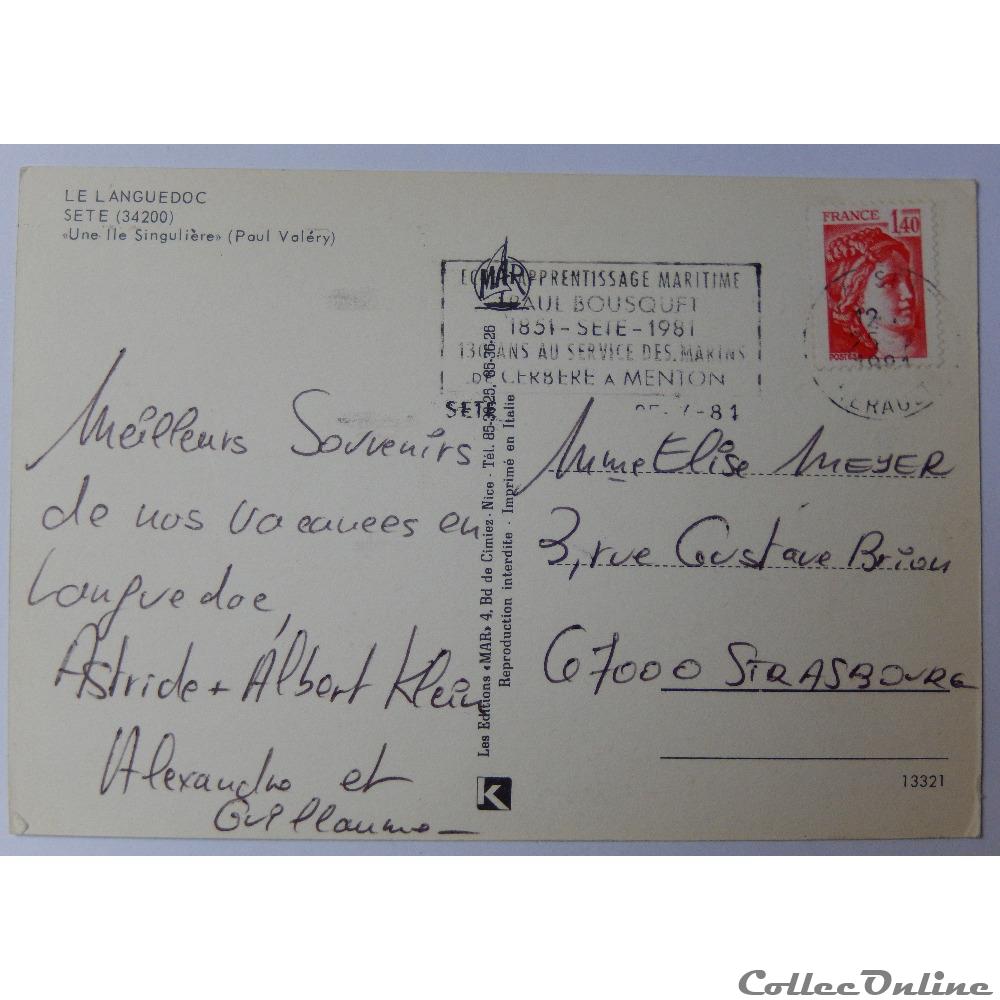 LE LANGUEDOC
SETE (34200)
«Une Ile Singulière» (Paul Valéry)
MAR
APPRENTISSAGE MARITIME
PAUL BOUSQUET
1851-SETE-1981
130 ANS AU SERVICE DES MARINS
DE CERBERE A MENTON
SETE -7-81
FRANCE 1,40
POSTES
12
1981
HERAULT
Meilleurs Souvenirs
de nos vacances en
Languedoc,
Astride + Albert Klein
Alexandre et
Guillaume
Les Editions «MAR» 4, Bd de Cimiez - Nice - Tél. 85-36-25, 85-36-26
Reproduction interdite - Imprimé en Italie
K
Mme Elise MEYER
3, rue Gustave Brion
67000 STRASBOURG
13321
CollecOnline